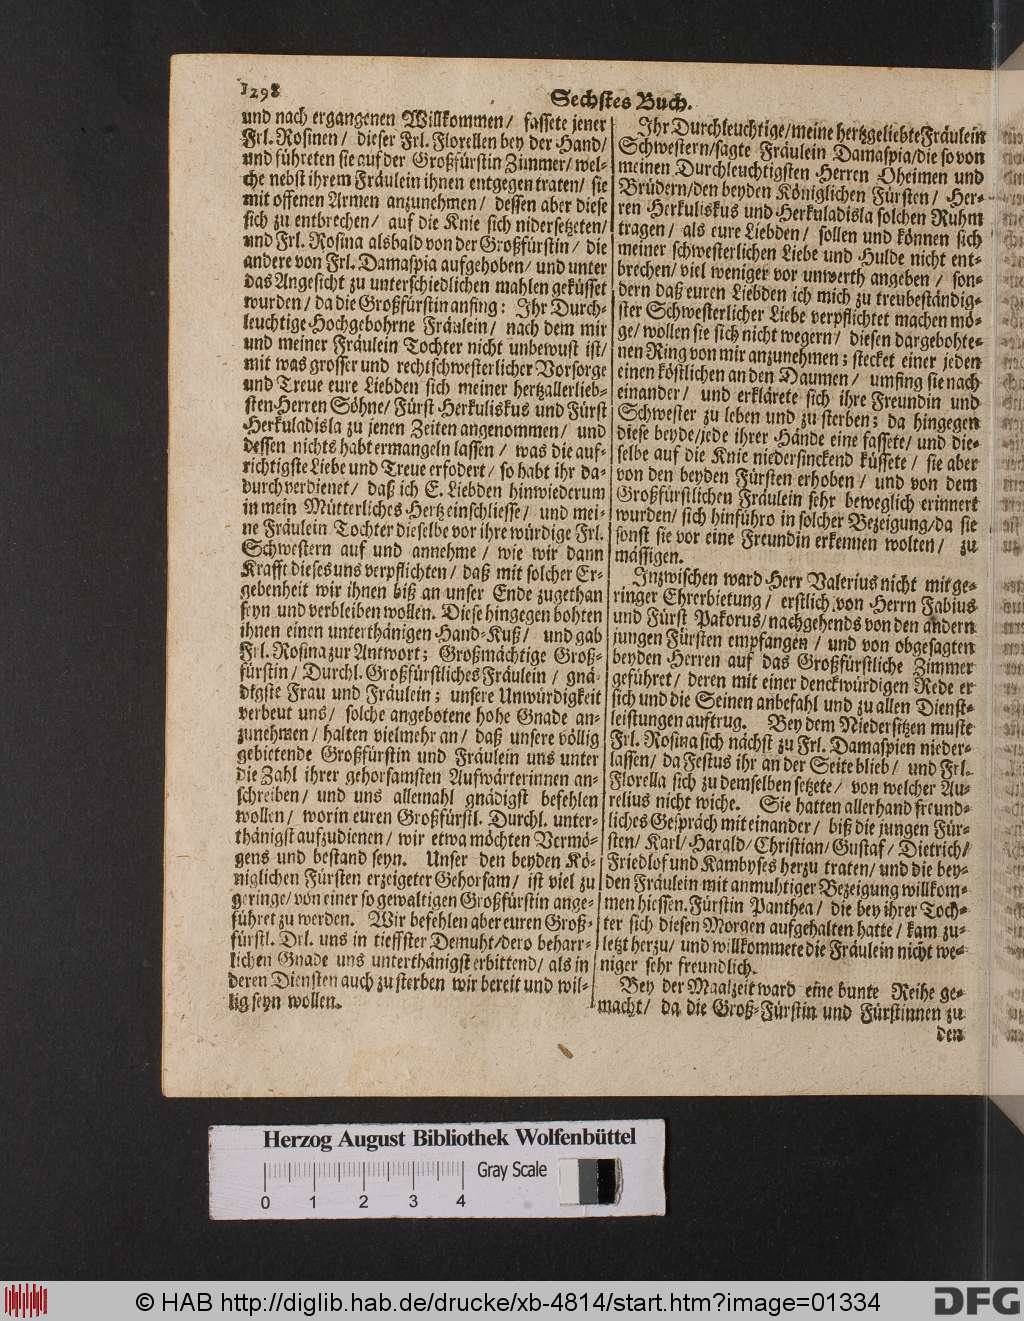 1298
Sechstes Buch.
und nach ergangenen Willkommen/ fassete jener
Frl. Rosinen/ dieser Frl. Florellen bey der Hand/
und führeten sie auf der Großfürstin Zimmer/ wel-
che nebst ihrem Fräulein ihnen entgegen traten/ sie
mit offenen Armen anzunehmen/ dessen aber diese
sich zu entbrechen/ auf die Knie sich nidersetzeten/
und Frl. Rosina alsbald von der Großfürstin/ die
andere von Frl. Damaspia aufgehoben/ und unter
das Angesicht zu unterschiedlichen mahlen geküsset
wurden/ da die Großfürstin anfing: Ihr Durch-
leuchtige Hochgebohrne Fräulein/ nach dem mir
und meiner Fräulein Tochter nicht unbewust ist/
mit was grosser und rechtschwesterlicher Vorsorge
und Treue eure Liebden sich meiner hertzallerlieb-
sten Herren Söhne/ Fürst Herkuliskus und Fürst
Herkuladisla zu jenen Zeiten angenommen/ und
dessen nichts habt ermangeln lassen/ was die auf-
richtigste Liebe und Treue erfodert/ so habt ihr da-
durch verdienet/ daß ich E. Liebden hinwiederum
in mein Mütterliches Hertz einschliesse/ und mei-
ne Fräulein Tochter dieselbe vor ihre würdige Frl.
Schwestern auf und annehme/ wie wir dann
Krafft dieses uns verpflichten/ daß mit solcher Er-
gebenheit wir ihnen biß an unser Ende zugethan
seyn und verbleiben wollen. Diese hingegen bohten
ihnen einen unterthänigen Hand-Kuß/ und gab
Frl. Rosina zur Antwort; Großmächtige Groß-
fürstin/ Durchl. Großfürstliches Fräulein/ gnä-
digste Frau und Fräulein; unsere Unwürdigkeit
verbeut uns/ solche angebotene hohe Gnade an-
zunehmen/ halten vielmehr an/ daß unsere völlig
gebietende Großfürstin und Fräulein uns unter
die Zahl ihrer gehorsamsten Aufwärterinnen an-
schreiben/ und uns allemahl gnädigst befehlen
wollen/ worin euren Großfürstl. Durchl. unter-
thänigst aufzudienen/ wir etwa möchten Vermö-
gens und bestand seyn. Unser den beyden Kö-
niglichen Fürsten erzeigeter Gehorsam/ ist viel zu
geringe/ von einer so gewaltigen Großfürstin ange-
führet zu werden. Wir befehlen aber euren Groß-
fürstl. Drl. uns in tieffster Demuht/ dero beharr-
lichen Gnade uns unterthänigst erbittend/ als in
deren Diensten auch zu sterben wir bereit und wil-
lig seyn wollen.
Ihr Durchleuchtige/ meine hertzgeliebte Fräulein
Schwestern/ sagte Fräulein Damaspia/ die so von
meinen Durchleuchtigsten Herren Oheimen und
Brüdern/ den beyden Königlichen Fürsten/ Her-
ren Herkuliskus und Herkuladisla solchen Ruhm
tragen/ als eure Liebden/ sollen und können sich
meiner schwesterlichen Liebe und Hulde nicht ent-
brechen/ viel weniger vor unwerth angeben/ son-
dern daß euren Liebden ich mich zu treubeständig-
ster Schwesterlicher Liebe verpflichtet machen mö-
ge/ wollen sie sich nicht wegern/ diesen dargebohte-
nen Ring von mir anzunehmen; stecket einer jeden
einen köstlichen an den Daumen/ umfing sie nach
einander/ und erklärete sich ihre Freundin und
Schwester zu leben und zu sterben; da hingegen
diese beyde/ jede ihrer Hände eine fassete/ und die-
selbe auf die Knie niedersinckend küssete/ sie aber
von den beyden Fürsten erhoben/ und von dem
Großfürstlichen Fräulein sehr beweglich erinnert
wurden/ sich hinführo in solcher Bezeigung/ da sie
sonst sie vor eine Freundin erkennen wolten/ zu
mässigen.
Inzwischen ward Herr Valerius nicht mit ge-
ringer Ehrerbietung/ erstlich von Herrn Fabius
und Fürst Pakorus/ nachgehends von den andern
jungen Fürsten empfangen/ und von obgesagten
beyden Herren auf das Großfürstliche Zimmer
geführet/ deren mit einer denckwürdigen Rede er
sich und die Seinen anbefahl und zu allen Dienst-
leistungen auftrug. Bey dem Niedersitzen muste
Frl. Rosina sich nächst zu Frl. Damaspien nieder-
lassen/ da Festus ihr an der Seite blieb/ und Frl.
Florella sich zu demselben setzete/ von welcher Au-
relius nicht wiche. Sie hatten allerhand freund-
liches Gespräch mit einander/ biß die jungen Für-
sten/ Karl/ Harald/ Christian/ Gustaf/ Dietrich/
Friedlof und Kambyses herzu traten/ und die bey-
den Fräulein mit anmuhtiger Bezeigung willkom-
men hiessen. Fürstin Panthea/ die bey ihrer Toch-
ter sich diesen Morgen aufgehalten hatte/ kam zu-
letzt herzu/ und willkommete die Fräulein nicht we-
niger sehr freundlich.
Bey der Maalzeit ward eine bunte Reihe ge-
macht/ da die Groß-Fürstin und Fürstinnen zu
den
Herzog August Bibliothek Wolfenbüttel
Gray Scale
0 1 2 3 4
© HAB http://diglib.hab.de/drucke/xb-4814/start.htm?image=01334
DFG